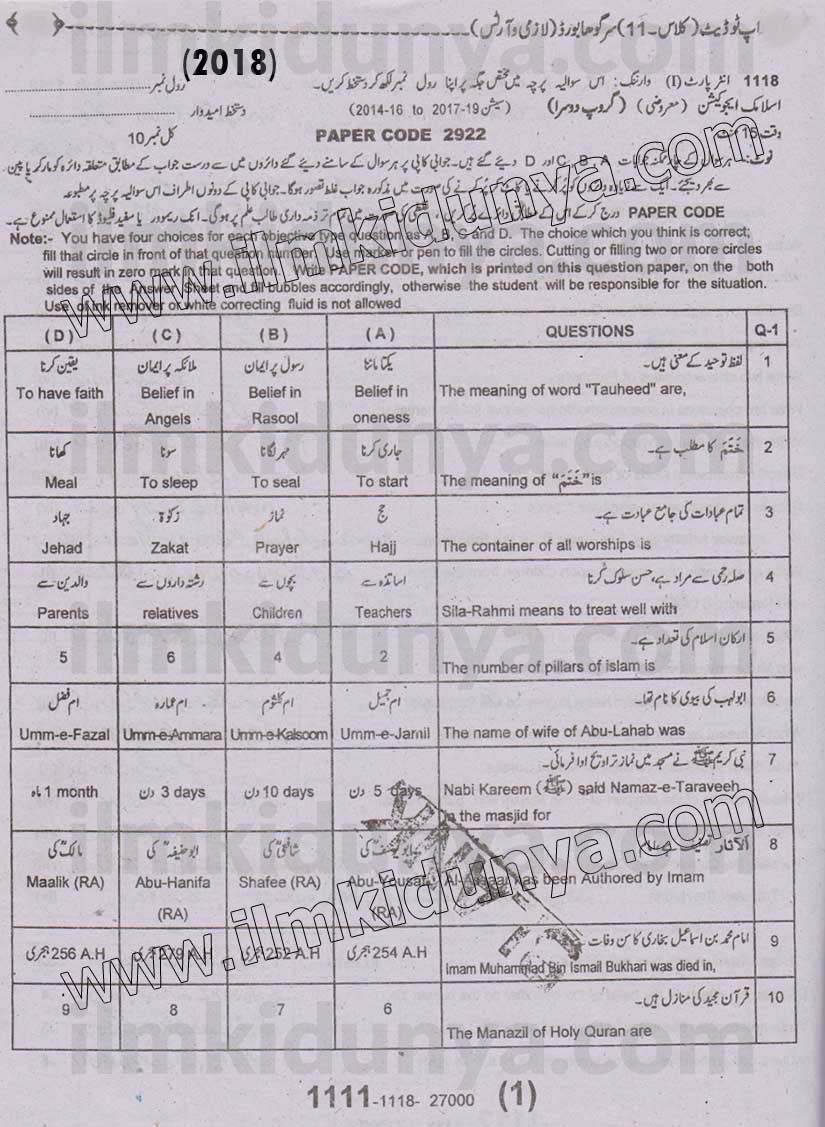 اپ ٹوڈیٹ (کلاس - 11) سرگودھا بورڈ (لازمی و آرٹس)
(2018)
1118 انٹر پارٹ (I) وارننگ: اس سوالیہ پرچہ میں مختص جگہ پر اپنا رول نمبر لکھ کر دستخط کریں۔ رول نمبر
اسلامک ایجوکیشن (معروضی) (گروپ دوسرا) (سیشن 19-2017 to 2014-16) دستخط امیدوار
وقت 15 منٹ PAPER CODE 2922 کل نمبر 10
نوٹ:- ہر سوال کے چار ممکنہ جوابات A، B، C اور D دیئے گئے ہیں۔ جوابی کاپی پر ہر سوال کے سامنے دیئے گئے دائروں میں سے درست جواب کے مطابق متعلقہ دائرہ کو مارکر یا پین
سے بھر دیجئے۔ ایک سے زیادہ دائروں کو پر کرنے یا کاٹ کر پر کرنے کی صورت میں مذکورہ جواب غلط تصور ہوگا۔ جوابی کاپی کے دونوں اطراف اس سوالیہ پرچہ پر مطبوعہ
PAPER CODE درج کر کے اس کے مطابق دائرے پر کریں، کی صورت میں تمام تر ذمہ داری طالب علم پر ہوگی۔ انک ریموور یا سفید فلیوڈ کا استعمال ممنوع ہے۔
Note:- You have four choices for each objective type question as A, B, C and D. The choice which you think is correct;
fill that circle in front of that question number. Use marker or pen to fill the circles. Cutting or filling two or more circles
will result in zero mark in that question. Write PAPER CODE, which is printed on this question paper, on the both
sides of the Answer Sheet and fill bubbles accordingly, otherwise the student will be responsible for the situation.
Use of ink remover or white correcting fluid is not allowed
(D) (C) (B) (A) QUESTIONS Q-1
یقین کرنا ملائکہ پر ایمان رسول پر ایمان یکتا ماننا لفظ توحید کے معنی ہیں۔ 1
To have faith Belief in Belief in Belief in The meaning of word "Tauheed" are,
Angels Rasool oneness
کھانا سونا مہر لگانا جاری کرنا خَتَمَ کا مطلب ہے۔ 2
Meal To sleep To seal To start The meaning of "خَتَمَ" is
جہاد زکوٰۃ نماز حج تمام عبادات کی جامع عبادت ہے۔ 3
Jehad Zakat Prayer Hajj The container of all worships is
والدین سے رشتہ داروں سے بچوں سے اساتذہ سے صلہ رحمی سے مراد ہے، حسن سلوک کرنا 4
Parents relatives Children Teachers Sila-Rahmi means to treat well with
5 6 4 2 ارکان اسلام کی تعداد ہے۔ 5
The number of pillars of islam is
ام فضل ام عمارہ ام کلثوم ام جمیل ابولہب کی بیوی کا نام تھا۔ 6
Umm-e-Fazal Umm-e-Ammara Umm-e-Kalsoom Umm-e-Jamil The name of wife of Abu-Lahab was
نبی کریم ﷺ نے مسجد میں نماز تراویح ادا فرمائی۔ 7
1 month ماہ 3 days دن 10 days دن 5 days دن Nabi Kareem (ﷺ) said Namaz-e-Taraveeh
in the masjid for
مالکؒ کی ابو حنیفہؒ کی شافعیؒ کی ابو یوسفؒ کی الآثار 8
Maalik (RA) Abu-Hanifa Shafee (RA) Abu-Yousaf has been Authored by Imam
(RA) (RA)
256 A.H ہجری 279 A.H ہجری 252 A.H ہجری 254 A.H ہجری امام محمد بن اسماعیل بخاری کا سن وفات 9
Imam Muhammad Bin Ismail Bukhari was died in,
9 8 7 6 قرآن مجید کی منازل ہیں۔ 10
The Manazil of Holy Quran are
1111-1118- 27000 (1)
www.ilmkidunya.com
www.ilmkidunya.com
ilmkidunya.com
ilmkidunya.com
ilmkidunya.com
ilmkidunya.com